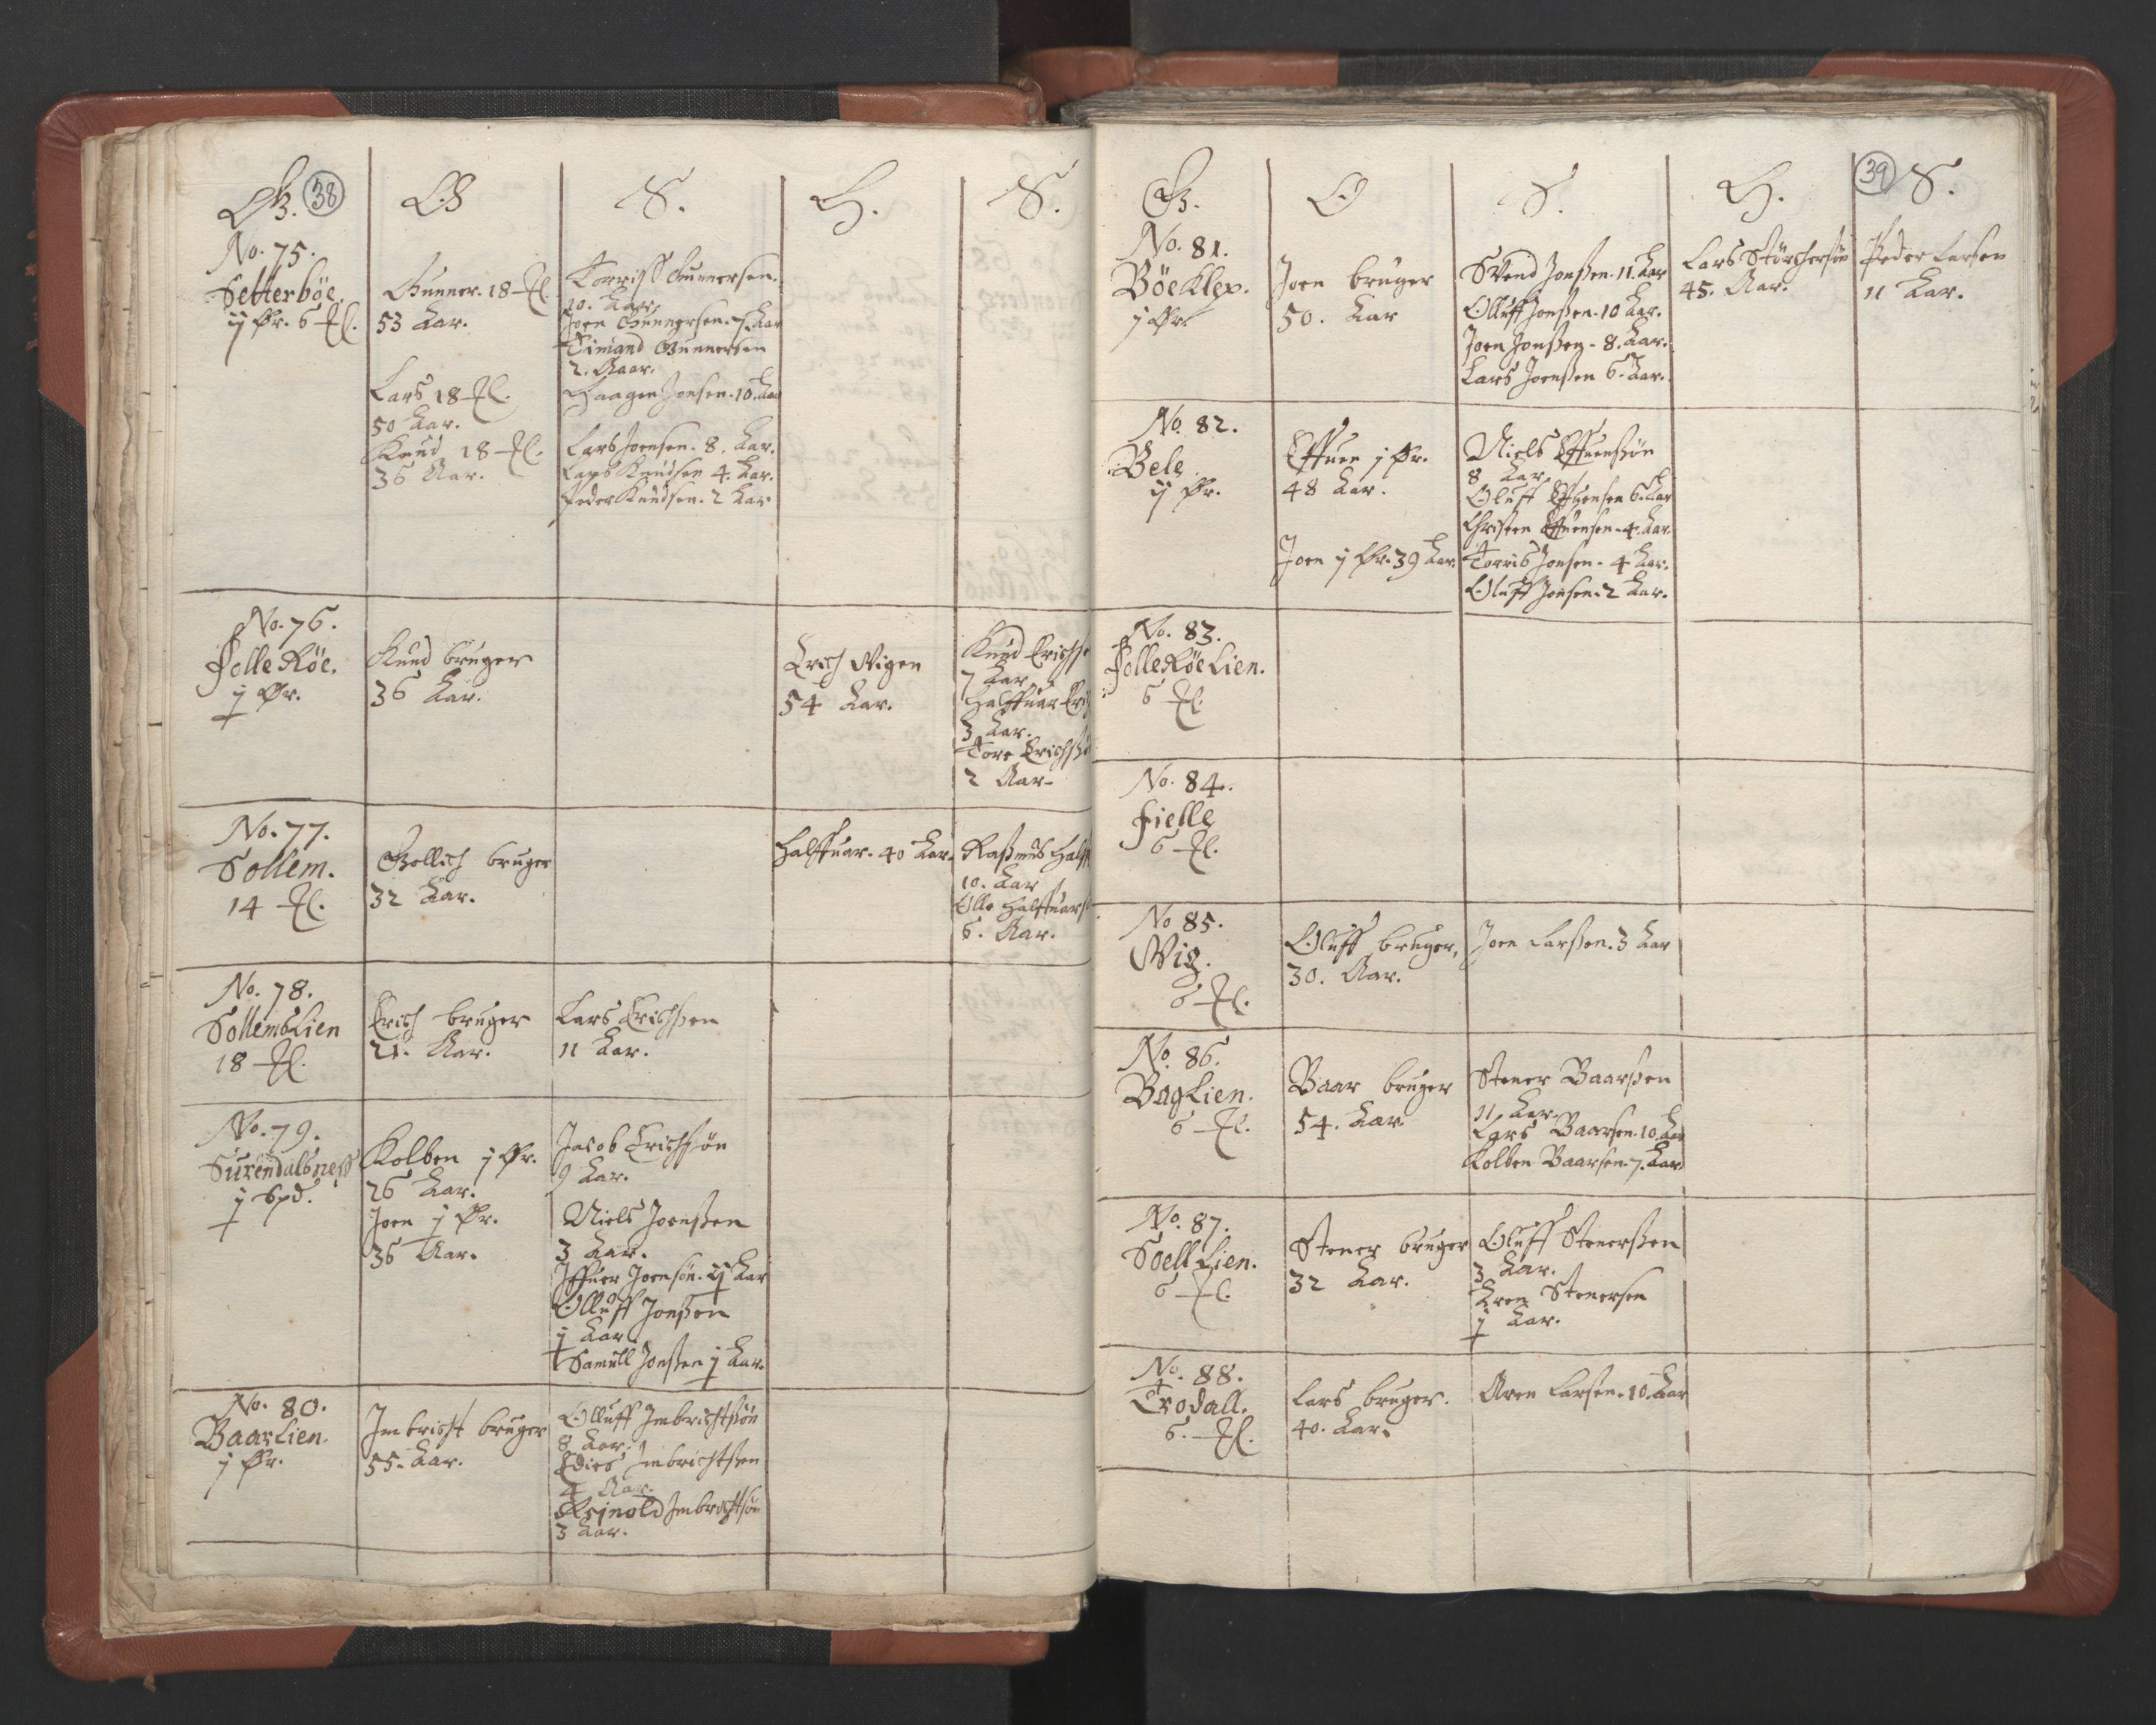 38
G. O S. H. S.
No. 75.
Setterbøe.
ij Ør. 6
Gunner. 18
53 Aar.
Lars 18
50 Aar.
Knud 18
36 Aar.
Torris Gunnersen.
10. Aar.
Joen Gunnersen. 7. Aar
Timand Gunnersen
2. Aar.
Haagen Jonsen. 10. Aar
Lars Joensen. 8. Aar.
Lars Knudsen 4. Aar.
Peder Knudsen. 2 Aar
No. 76.
Polle Røe.
j Ør.
Knud bruger
36 Aar.
Erich Wigen
54 Aar.
Knud Erichs
7 Aar
Halffuar Eri
3 Aar.
Tore Erichs
2 Aar.
No. 77.
Sollem.
14
Gollich bruger
32 Aar.
Halffuar. 40 Aar.
Rasmus Halff
10. Aar
Olle Halffuars
6. Aar.
No. 78.
SollemsLien
18
Erich bruger
21. Aar.
Lars Erichsen
11 Aar.
No. 79.
Surendalsness
j Spd.
Kolben j Ør.
26 Aar.
Joen j Ør.
36 Aar.
Jacob Erichsøn
9 Aar.
Niels Joensen
3 Aar.
Iffuer Joensøn. ij Aar
Olluff Jonsen
j Aar
Samull Jonsen j Aar.
No. 80.
BaarLien.
j Ør.
Imbricht bruger
55. Aar.
Olluff Imbrichtsøn
8 Aar.
Edies Imbrichtsen
4 Aar.
Reinold Imbrichtsøn
3 Aar.
39
G. O S. H. S.
No. 81.
BøeKlep.
j Ør.
Joen bruger
50. Aar
Svend Jonsen. 11. Aar
Olluff Jonsen. 10 Aar.
Joen Jonsen. 8. Aar.
Lars Joensen 6. Aar.
Lars Størchersøn
45. Aar.
Peder Larsen
11 Aar.
No. 82.
Bele
ij Ør.
Effuen j Ør.
48 Aar.
Joen j Ør. 39 Aar.
Niels Effuensøn
8 Aar
Oluff Effuensen 6. Aar
Christen Effuensen. 4. Aar.
Torris Jonsen. 4 Aar.
Oluff Jonsen. 2 Aar.
No. 83.
PolleRøeLien.
6
No. 84.
Fielle
6
No 85.
Wig.
6
Oluff bruger,
30. Aar.
Joen Larsen. 3 Aar
No. 86.
BagLien.
6
Baar bruger
54. Aar
Stener Baarsen
11, Aar.
Lars Baarsen. 10. Aar
Kolben Baarsen. 7. Aar.
No. 87.
Soell Lien.
6
Stener bruger
32 Aar.
Oluff Stenersen
3 Aar.
Aren Stenersen
j Aar.
No. 88.
Trodall.
6.
Lars bruger.
40. Aar.
Aren Larsen. 10. Aar